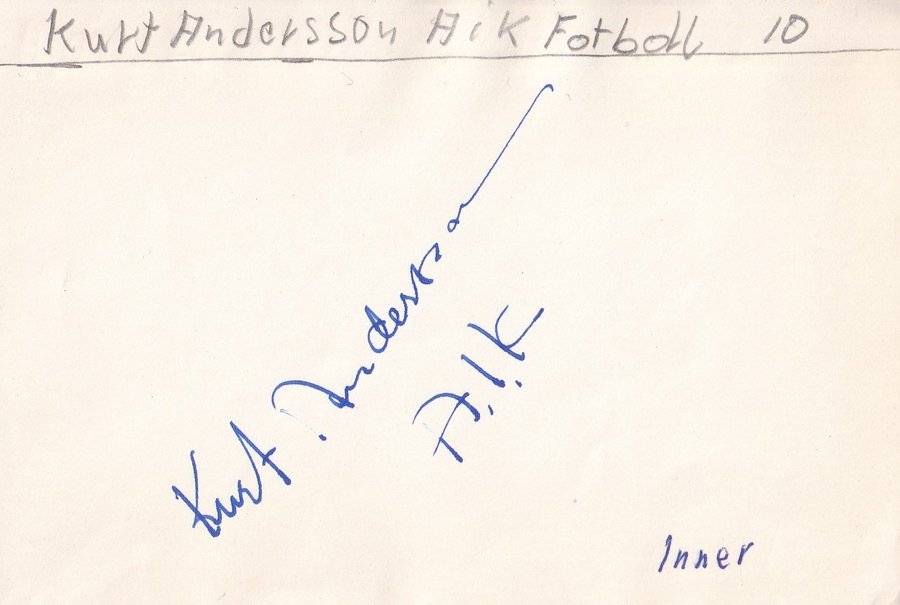 Kurt Andersson Aik Fotboll 10
Kurt Andersson
A.I.K
Inner